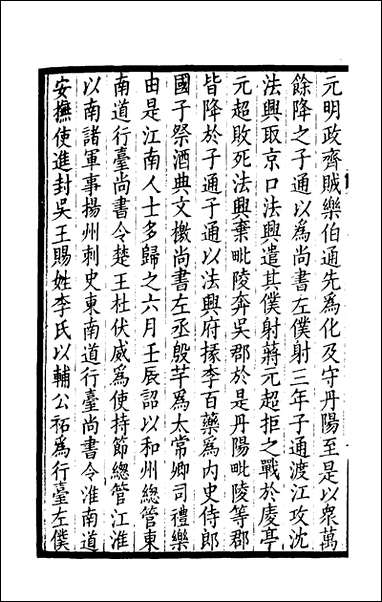 元明政齊賊樂伯通先為化及守丹陽至是以衆萬
餘降之子通以為尚書左僕射三年子通渡江攻沈
法興取京口法興遣其僕射蔣元超拒之戰於慶亭
元超敗死法興棄毗陵奔吳郡於是丹陽毗陵等郡
皆降於子通子通以法興府掾李百藥為內史侍郎
國子祭酒典文檄尚書左丞殷芊為太常卿司禮樂
由是江南人士多歸之六月壬辰詔以和州總管東
南道行臺尚書令楚王杜伏威為使持節總管江淮
以南諸軍事揚州刺史東南道行臺尚書令淮南道
安撫使進封吳王賜姓李氏以輔公祏為行臺左僕